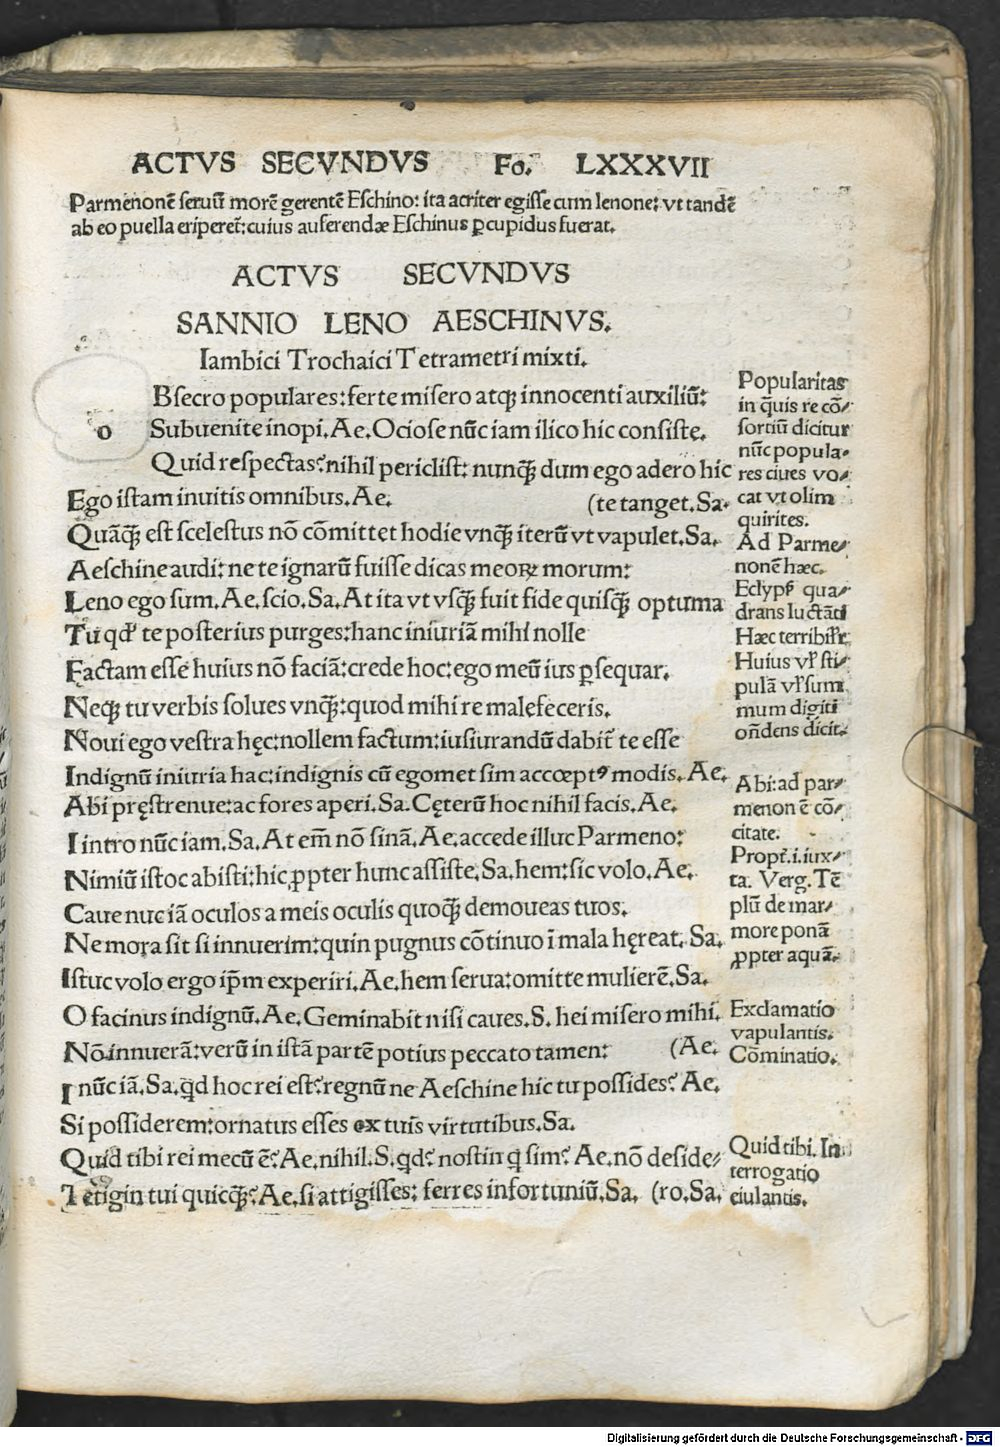 ACTVS SECVNDVS Fo. LXXXVII
Parmenonē seruū morē gerentē Eschino: ita acriter egisse cum lenone: vt tandē
ab eo puella eriperet̄: cuius auferendæ Eschinus ꝑcupidus fuerat.
ACTVS SECVNDVS
SANNIO LENO AESCHINVS.
Iambici Trochaici Tetrametri mixti.
o
Bsecro populares: ferte misero atqꝫ innocenti auxiliū:
Subuenite inopi. Ae. Ociose nūc iam ilico hic consiste.
Quid respectas? nihil periclist: nunqꝫ̄ dum ego adero hic
Ego istam inuitis omnibus. Ae. (te tanget. Sa.
Quāqꝫ̄ est scelestus nō cōmittet hodie vnqꝫ̄ iterū vt vapulet. Sa.
Aeschine audi: ne te ignarū fuisse dicas meoꝝ morum:
Leno ego sum. Ae. scio. Sa. At ita vt vsqꝫ̄ fuit fide quisqꝫ̄ optuma
Tu qđ te posterius purges: hanc iniuriā mihi nolle
Factam esse huius nō faciā: crede hoc: ego meū ius ꝑsequar.
Neqꝫ tu verbis solues vnqꝫ̄: quod mihi re malefeceris.
Noui ego vestra hęc: nollem factum: iusiurandū dabit̄ te esse
Indignū iniuria hac: indignis cū egomet sim accœptꝰ modis. Ae.
Abi pręstrenue: ac fores aperi. Sa. Cęterū hoc nihil facis. Ae.
I intro nūc iam. Sa. At em̄ nō sinā. Ae. accede illuc Parmeno:
Nimiū istoc abisti: hic ꝓpter hunc assiste. Sa. hem: sic volo. Ae.
Caue nuc iā oculos a meis oculis quoqꝫ̄ demoueas tuos.
Ne mora sit si innuerim: quin pugnus cōtinuo ī mala hęreat. Sa.
Istuc volo ergo ip̄m experiri. Ae. hem serua: omitte mulierē. Sa.
O facinus indignū. Ae. Geminabit nisi caues. S. hei misero mihi.
Nō innuerā: verū in istā partē potius peccato tamen: (Ae.
I nūc iā. Sa. qd̄ hoc rei est? regnū ne Aeschine hic tu possides? Ae.
Si possiderem: ornatus esses ex tuis virtutibus. Sa.
Quid tibi rei mecū ē? Ae. nihil. S. qd̄? nostin q̄ sim? Ae. nō deside⸗
Tetigin tui quicqꝫ̄? Ae. si attigisses: ferres infortuniū. Sa. (ro. Sa.
Popularitas
in q̄uis re cō⸗
sortiū dicitur
nūc popula⸗
res ciues vo⸗
cat vt olim
quirites.
Ad Parme⸗
nonē hæc.
drans luctāti
Huius vl̄ sti⸗
pulā vl̄ sum
mum digiti
oñdens dicit.
Abi: ad par⸗
menonē cō⸗
citate.
Propt̄. i. iux⸗
ta. Verg. Tē
plū de mar⸗
more ponā
ꝓpter aquā.
Exclamatio
vapulantis.
Cōminatio.
Quid tibi. In
terrogatio
eiulantis.
Digitalisierung gefördert durch die Deutsche Forschungsgemeinschaft - DFG